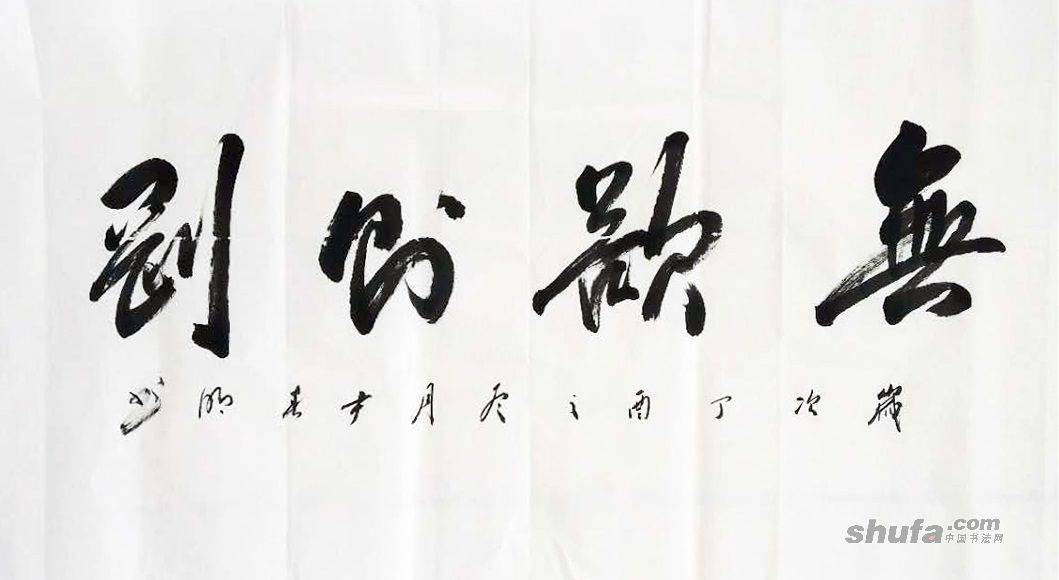 無欲則剛
歲次丁酉之冬月 春明書
shufa.com
中国书法网